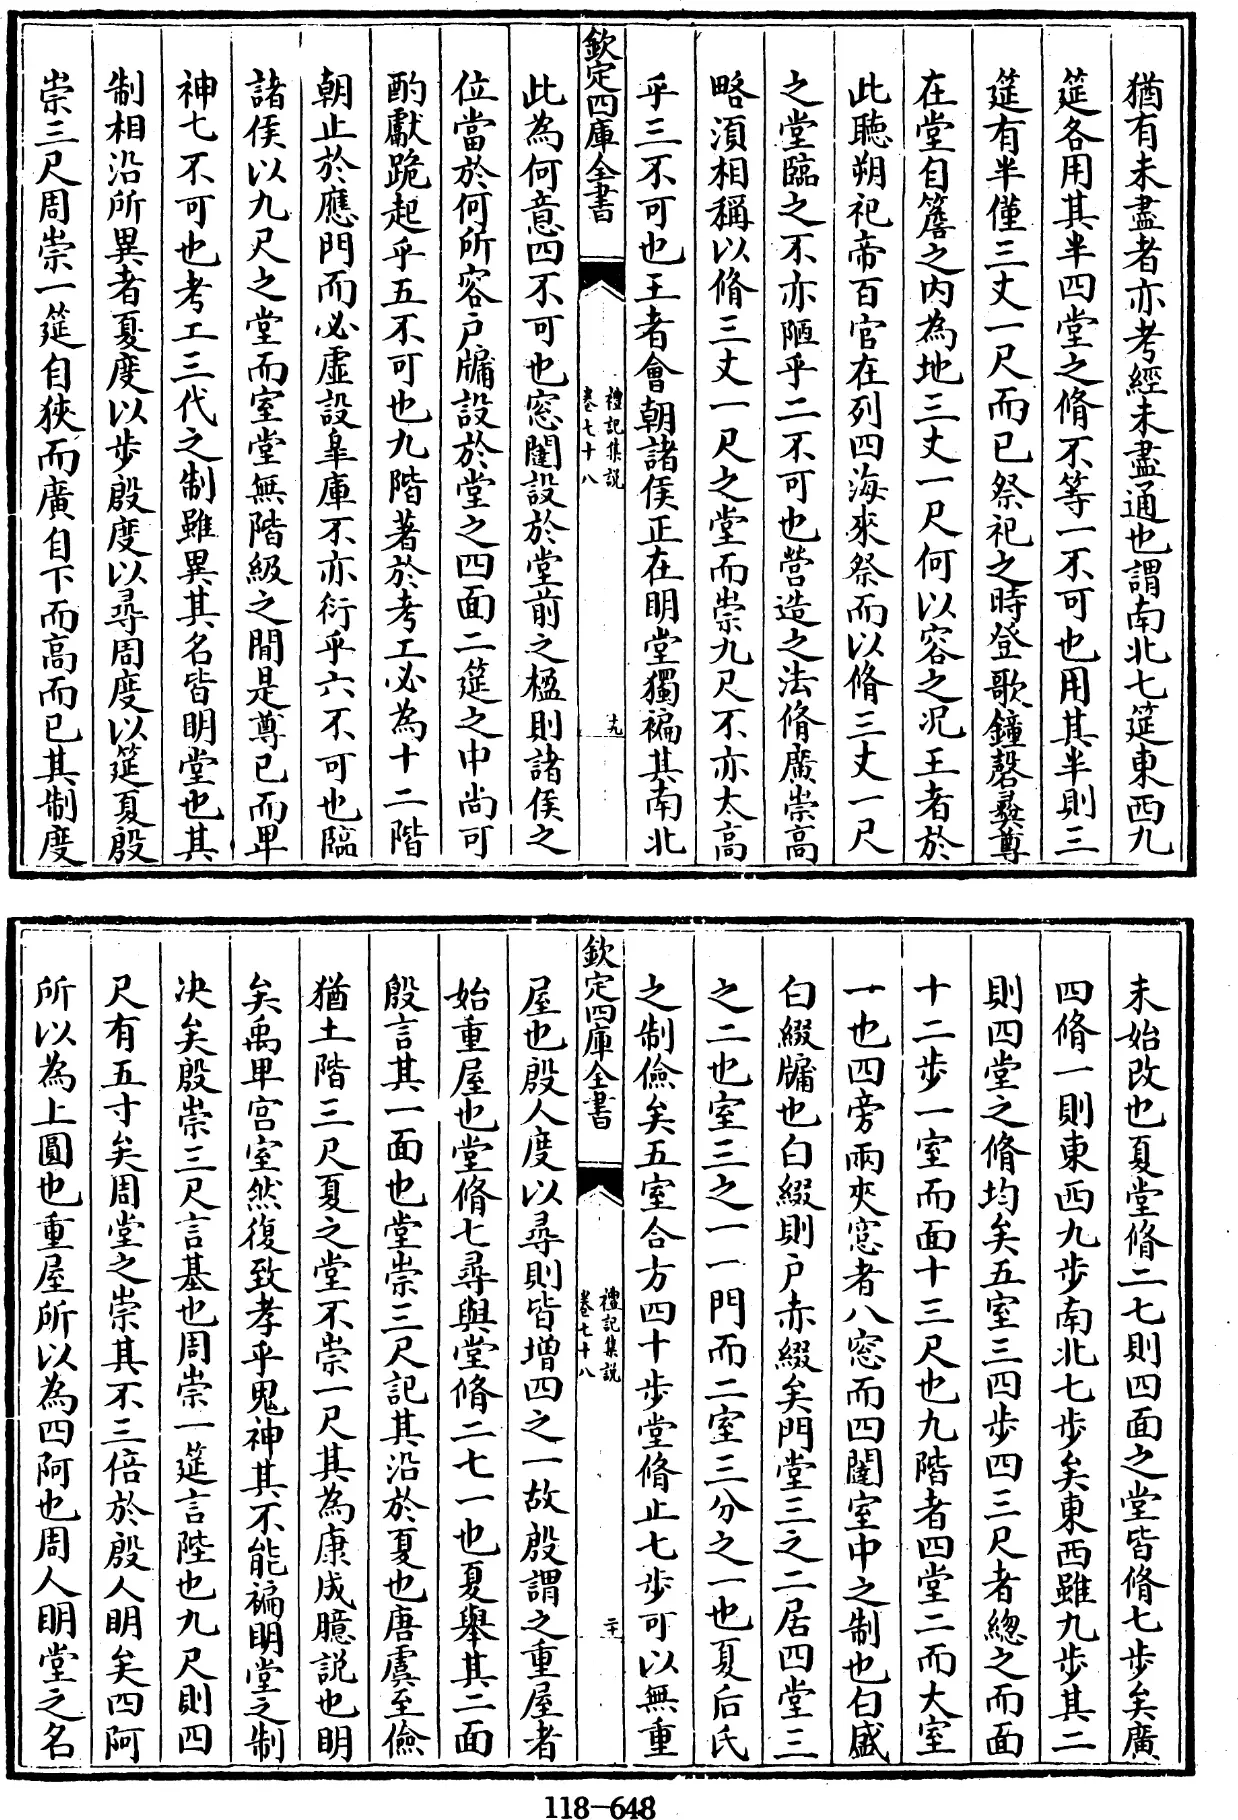 猶有未盡者亦考經未盡通也謂南北七筵東西九
筵各用其半四堂之脩不等一不可也用其半則三
筵有半僅三丈一尺而已祭祀之時登歌鐘磬彞尊
在堂自簷之內為地三丈一尺何以容之况王者於
此聴朔祀帝百官在列四海來祭而以脩三丈一尺
之堂臨之不亦陋乎二不可也營造之法脩廣崇高
略湏相稱以脩三丈一尺之堂而崇九尺不亦太高
乎三不可也王者會朝諸侯正在明堂獨褊其南北
欽定四庫全書
禮記集說
卷七十八
十九
此為何意四不可也窓闥設於堂前之楹則諸侯之
位當於何所容户牖設於堂之四面二筵之中尚可
酌獻跪起乎五不可也九階著於考工必為十二階
朝止於應門而必虛設臯庫不亦衍乎六不可也臨
諸侯以九尺之堂而室堂無階級之間是尊已而卑
神七不可也考工三代之制雖異其名皆明堂也其
制相沿所異者夏度以步殷度以尋周度以筵夏殷
崇三尺周崇一筵自狹而廣自下而高而已其制度
未始改也夏堂脩二七則四面之堂皆脩七步矣廣
四脩一則東西九步南北七步矣東西雖九步其二
則四堂之脩均矣五室三四步四三尺者總之而面
十二步一室而面十三尺也九階者四堂二而大室
一也四旁兩夾窓者八窓而四闥室中之制也白盛
白綴牖也白綴則户赤綴矣門堂三之二居四堂三
之二也室三之一一門而二室三分之一也夏后氏
之制儉矣五室合方四十步堂脩止七步可以無重
欽定四庫全書
禮記集說
卷七十八
二十
屋也殷人度以尋則皆增四之一故殷謂之重屋者
始重屋也堂脩七尋與堂脩二七一也夏舉其二面
殷言其一面也堂崇三尺記其沿於夏也唐虞至儉
猶土階三尺夏之堂不崇一尺其為康成臆説也明
矣禹卑宫室然復致孝乎鬼神其不能褊明堂之制
决矣殷崇三尺言基也周崇一筵言陛也九尺則四
尺有五寸矣周堂之崇其不三倍於殷人明矣四阿
所以為上圓也重屋所以為四阿也周人明堂之名
118-648